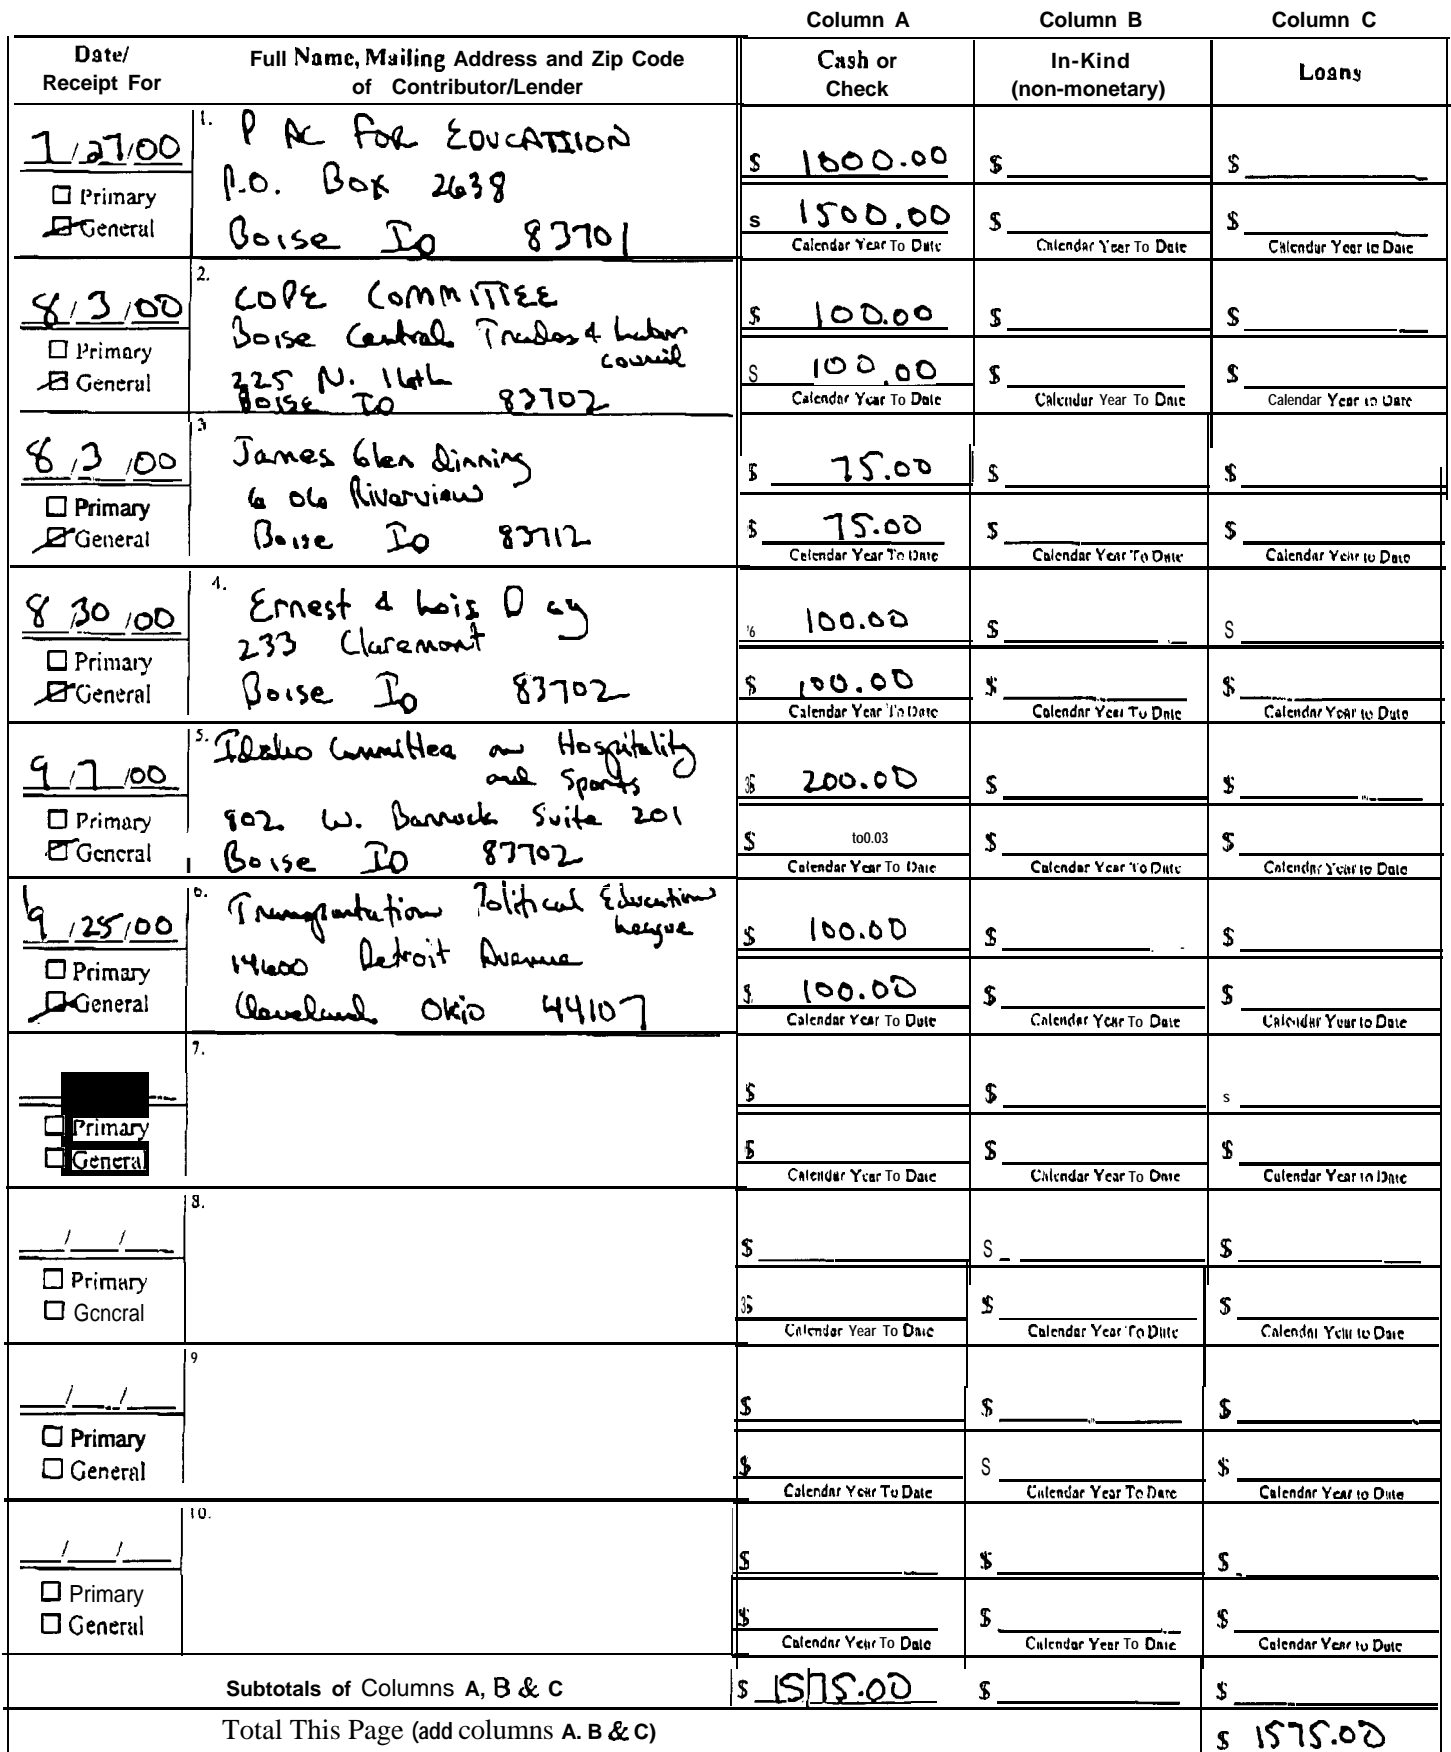 Column A Column B Column C
Date/ Receipt For
Full Name, Mailing Address and Zip Code of Contributor/Lender
Cash or Check
In-Kind (non-monetary)
Loans
7/27/00
Primary
General
1. P AC FOR EDUCATIION
P.O. Box 2638
Boise ID 83701
$ 1000.00 $ $
$ 1500.00 $ $
Calendar Year To Date Calendar Year To Date Calendar Year to Date
8/3/00
Primary
General
2. COPE COMMITTEE
Boise Central Trades & Labor
council
225 N. 16th
BOISE ID 83702
$ 100.00 $ $
S 100.00 $ $
Calendar Year To Date Calendar Year To Date Calendar Year to Date
8/3/00
Primary
General
3 James Glen Dinning
606 Riverview
Boise ID 83712
$ 75.00 $ $
$ 75.00 $ $
Calendar Year To Date Calendar Year To Date Calendar Year to Date
8 30/00
Primary
General
4. Ernest & Lois Day
233 Claremont
Boise ID 83702
100.00 $ S
$ 100.00 $ $
Calendar Year To Date Calendar Year To Date Calendar Year to Date
9/7/00
Primary
General
5. Idaho Committee on Hospitality
and Sports
802 W. Bannock Suite 201
Boise ID 83702
$ 200.00 $ $
$ to0.03 $ $
Calendar Year To Date Calendar Year To Date Calendar Year to Date
9/25/00
Primary
General
6. Transportation Political Education
League
14600 Detroit Avenue
Cleveland Ohio 44107
$ 100.00 $ $
$ 100.00 $ $
Calendar Year To Date Calendar Year To Date Calendar Year to Date
7.
Primary
General
$ $ s
$ $ $
Calendar Year To Date Calendar Year To Date Calendar Year to Date
8.
/ /
Primary
General
$ S $
$ $ $
Calendar Year To Date Calendar Year To Date Calendar Year to Date
9
/ /
Primary
General
$ $ $
$ S $
Calendar Year To Date Calendar Year To Date Calendar Year to Date
10.
/ /
Primary
General
$ $ $
$ $ $
Calendar Year To Date Calendar Year To Date Calendar Year to Date
Subtotals of Columns A, B & C $ 1575.00 $ $
Total This Page (add columns A. B & C) $ 1575.00